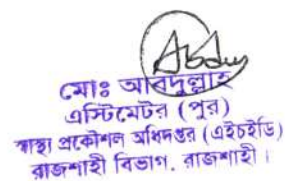 মোঃ আবদুল্লাহ
এস্টিমেটর (পুর)
স্বাস্থ্য প্রকৌশল অধিদপ্তর (এইচইডি)
রাজশাহী বিভাগ, রাজশাহী।